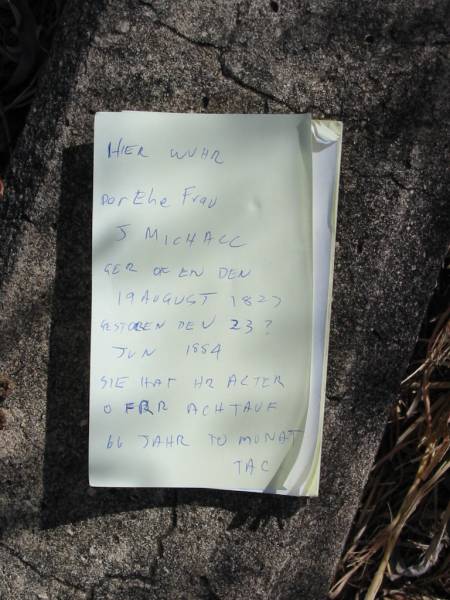 HIER WUHR
Dor Ehe Frau
J MICHALL
GER OF EN DEN
19 AUGUST 1827
GESTOREN DEN 23?
JUN 1884
SIE HAT HR ALTER
O FRR ACHTAUF
66 JAHR TO MONAT
TAC